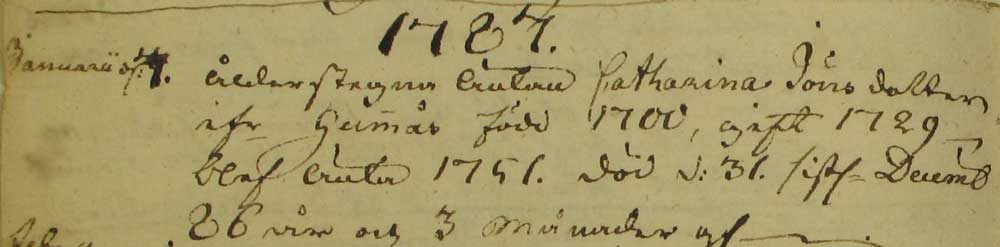 1787.
Januarii d. 7. ålderstegna Enkan Catharina Jöns dotter
ifr Hummås född 1700, gift 1729
blef Enka 1751. död d: 31. sistl Decemb
86 år och 3 Månader gl